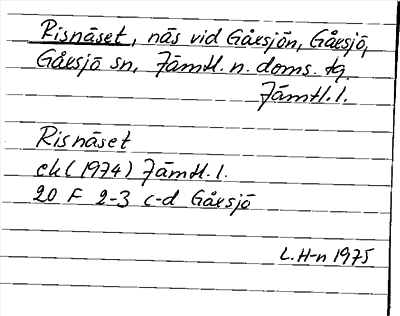 Risnäset, näs vid Gåxsjön, Gåxsjö,
Gåxsjö sn, Jämtl. n. doms. tg.
Jämtl. l.
Risnäset
ek (1974) Jämtl. l.
20 F 2-3 c-d Gåxsjö
L. H-n 1975